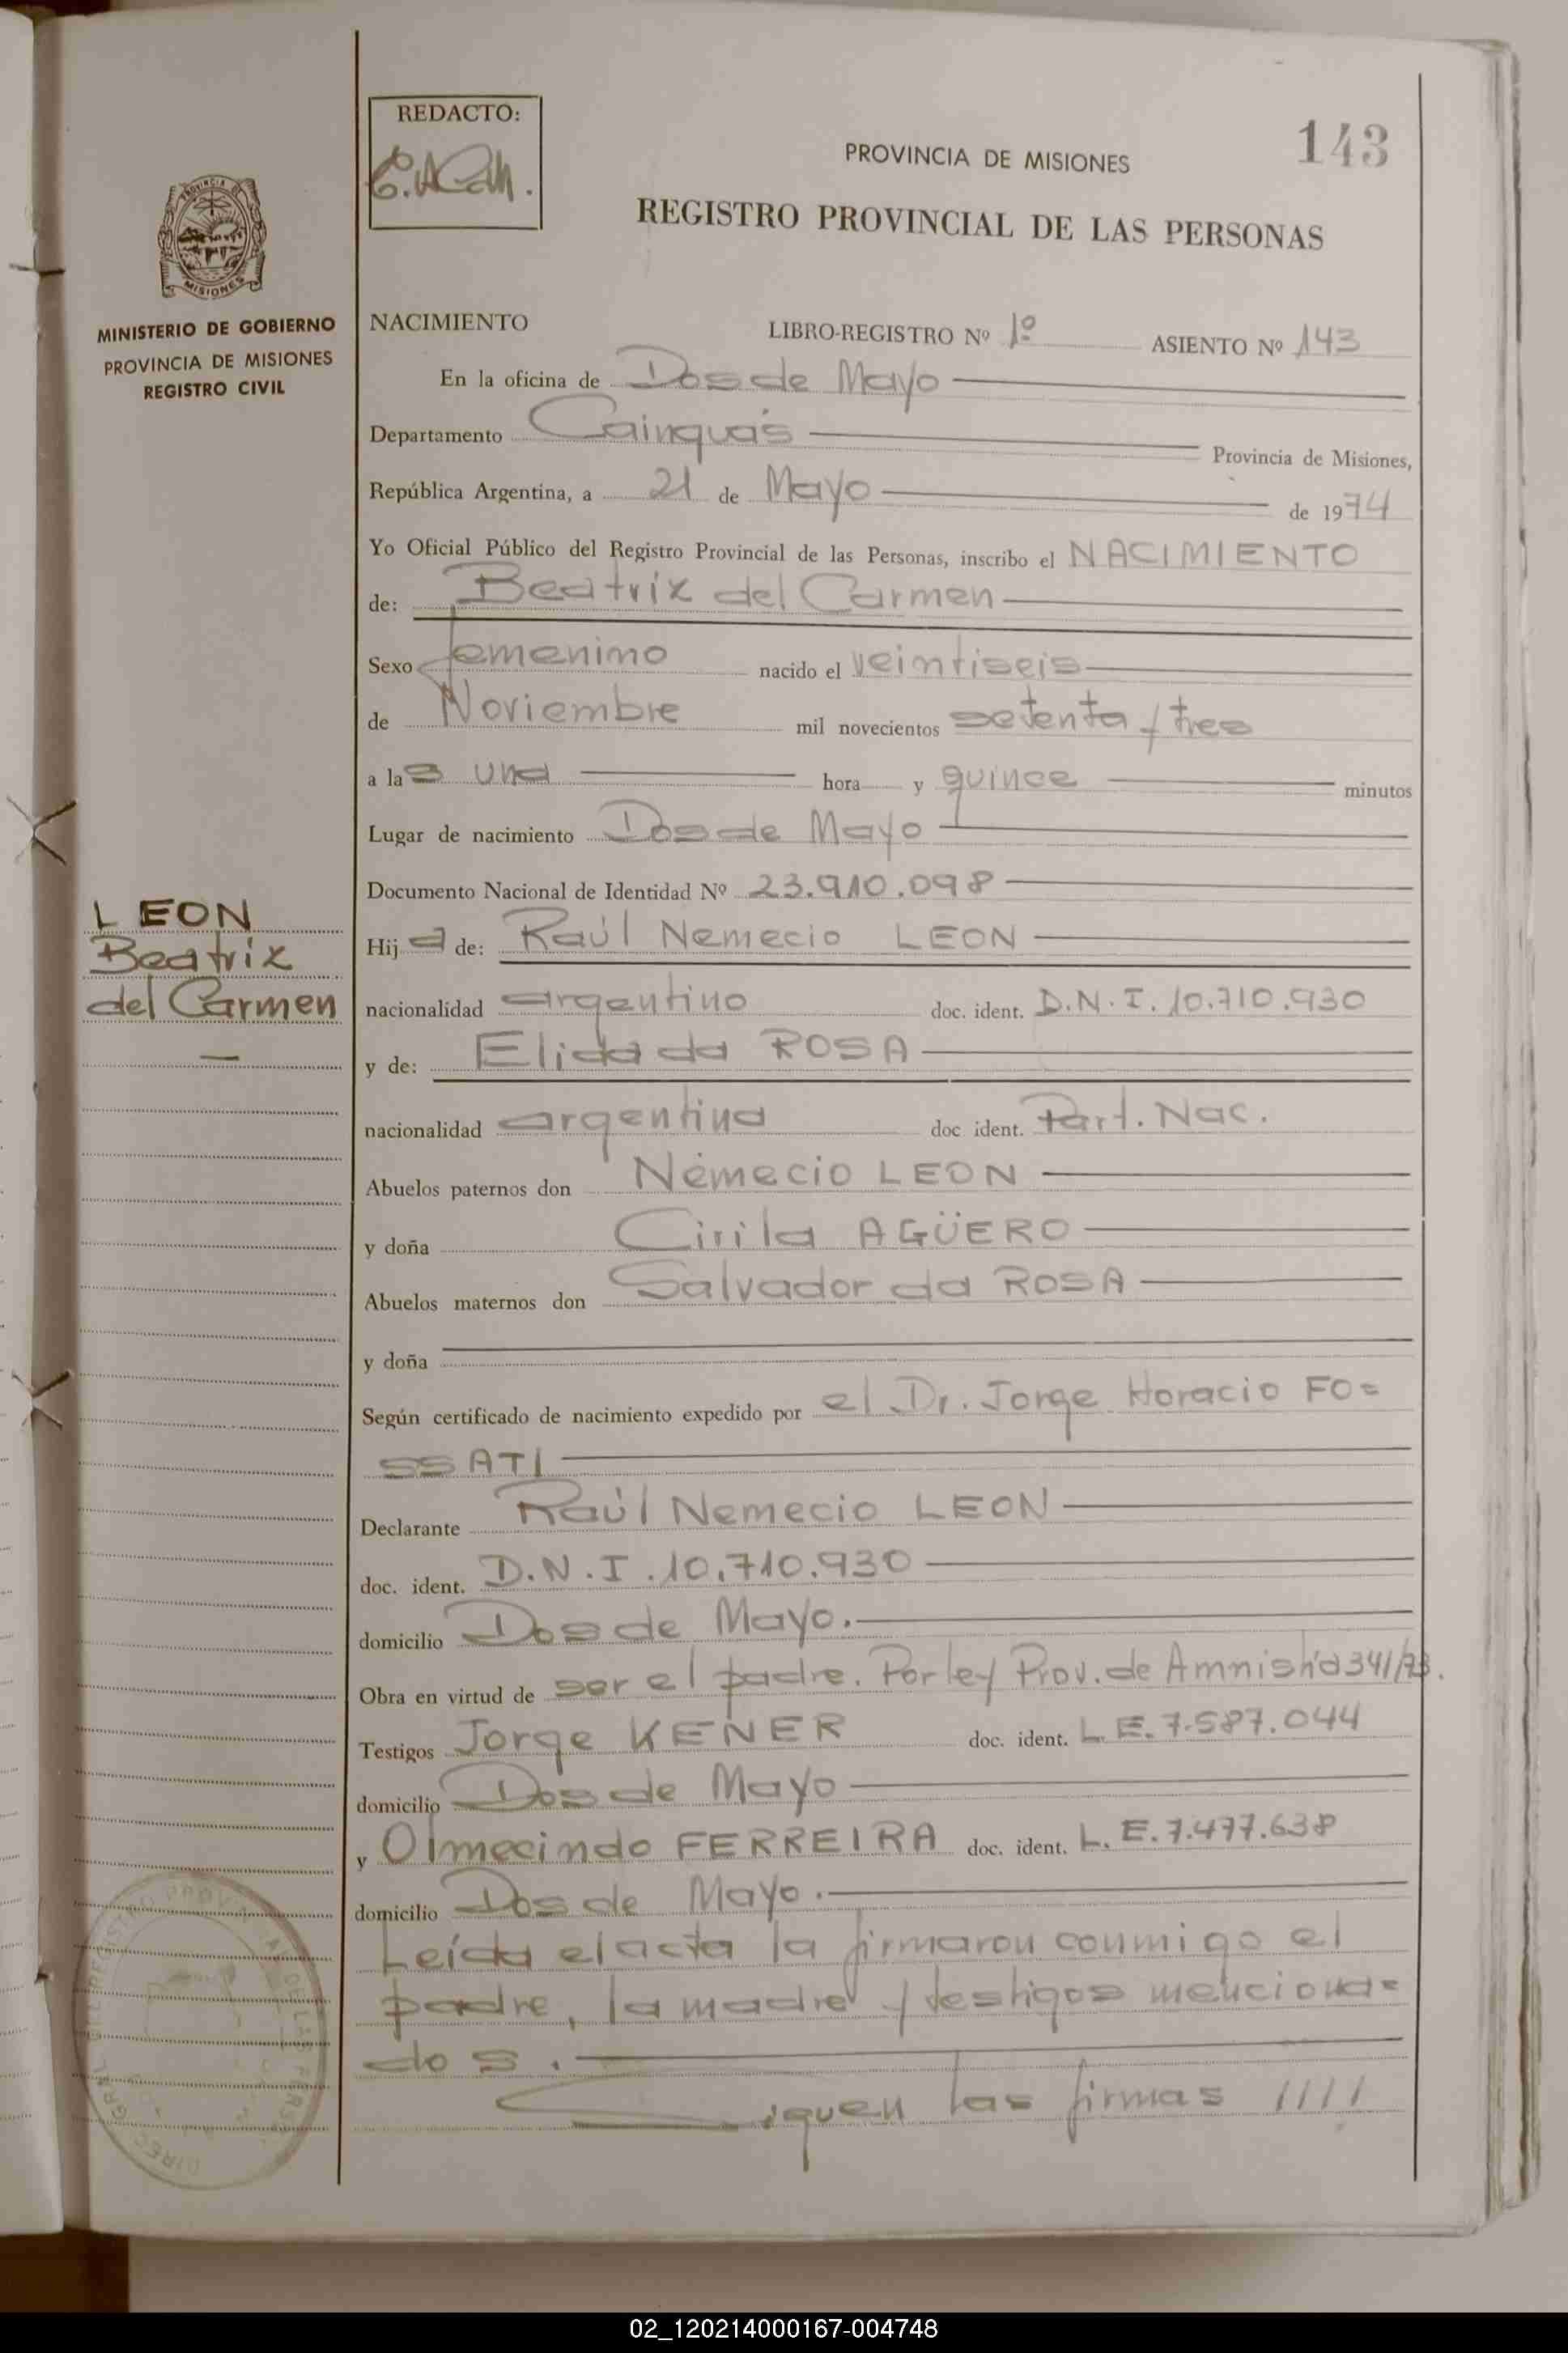 REDACTO:
143
PROVINCIA DE MISIONES
REGISTRO PROVINCIAL DE LAS PERSONAS
MISIONES
MINISTERIO DE GOBIERNO
PROVINCIA DE MISIONES
REGISTRO CIVIL
NACIMIENTO LIBRO-REGISTRO Nº 1º ASIENTO Nº 143
En la oficina de Dos de Mayo
Departamento Cainguás Provincia de Misiones,
República Argentina, a 21 de Mayo de 1974
Yo Oficial Público del Registro Provincial de las Personas, inscribo el NACIMIENTO
de: Beatrix del Carmen
Sexo femenino nacido el veintiseis
de Noviembre mil novecientos setenta y tres
a las una hora y quince minutos
Lugar de nacimiento Dos de Mayo
Documento Nacional de Identidad Nº 23.910.098
LEON
Beatrix
del Carmen
Hija de: Raúl Nemecio LEON
nacionalidad argentino doc. ident. D.N.I. 10.710.930
y de: Elida da ROSA
nacionalidad argentina doc ident. Part. Nac.
Abuelos paternos don Nemecio LEON
y doña Cirila AGÜERO
Abuelos maternos don Salvador da ROSA
y doña
Según certificado de nacimiento expedido por el Dr. Jorge Horacio FO=
SSATI
Declarante Raúl Nemecio LEON
doc. ident. D.N.I. 10.710.930
domicilio Dos de Mayo.
Obra en virtud de ser el padre. Por ley Prov. de Amnistía 341/73.
Testigos Jorge KENER doc. ident. L.E. 7.587.044
domicilio Dos de Mayo
y Olmecindo FERREIRA doc. ident. L.E. 7.477.638
domicilio Dos de Mayo.
Leída el acta la firmaron conmigo el
padre, la madre y testigos menciona=
dos.
Siguen las firmas ////
02_120214000167-004748